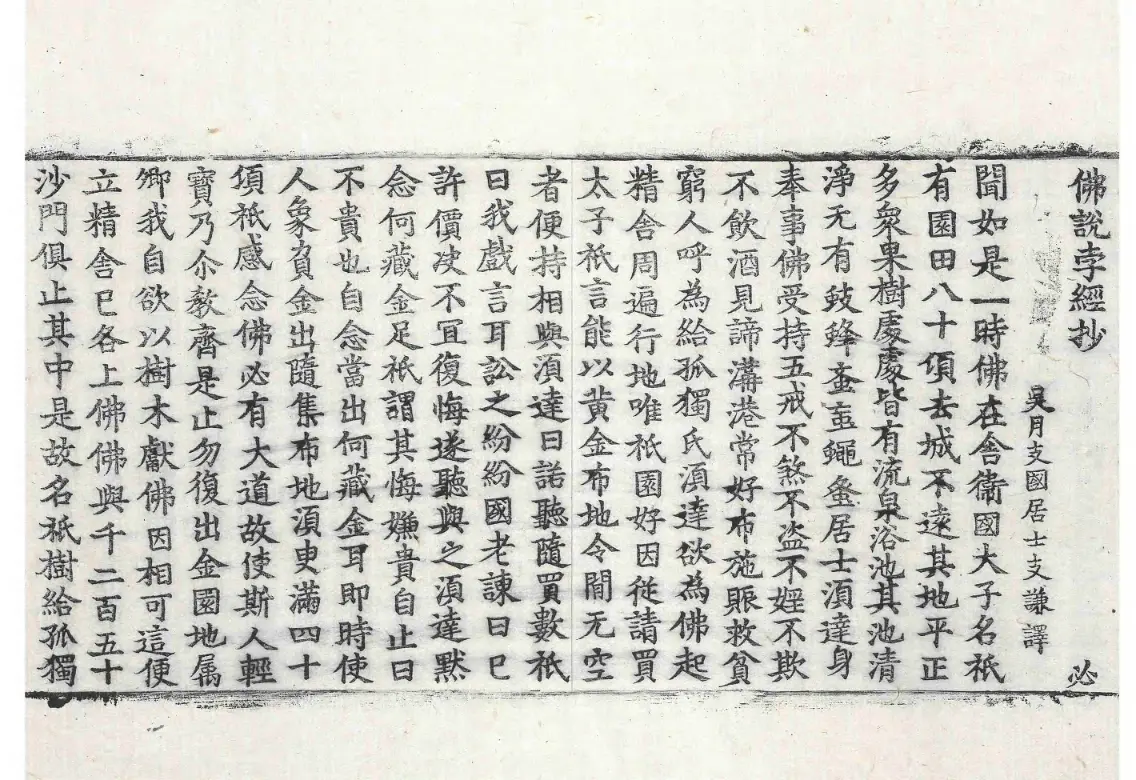 佛說孛經抄 必
吳月支國居士支謙譯
聞如是一時佛在舍衞國大子名祇
有園田八十頃去城不遠其地平正
多衆果樹處處皆有流泉浴池其池清
淨无有蚑蜂蚤䖟蠅𧎮居士湏達身
奉事佛受持五戒不煞不盗不婬不欺
不飲酒見諦溝港常好布施賑救貧
窮人呼為給孤獨氏湏達欲為佛起
精舍周遍行地唯祇園好因從請買
太子祇言能以黄金布地令間无空
者便持相與湏達曰諾聽隨買數祇
曰我戲言耳訟之紛紛國老諫曰已
許價决不冝復悔遂聽與之湏達黙
念何藏金足祇謂其悔嫌貴自止曰
不貴也自念當出何藏金耳即時使
人象負金出隨集布地湏臾滿四十
頃祇感念佛必有大道故使斯人輕
寶乃尒敎齊是止勿復出金園地属
卿我自欲以樹木獻佛因相可這便
立精舍已各上佛佛與千二百五十
沙門俱止其中是故名祇樹給孤獨